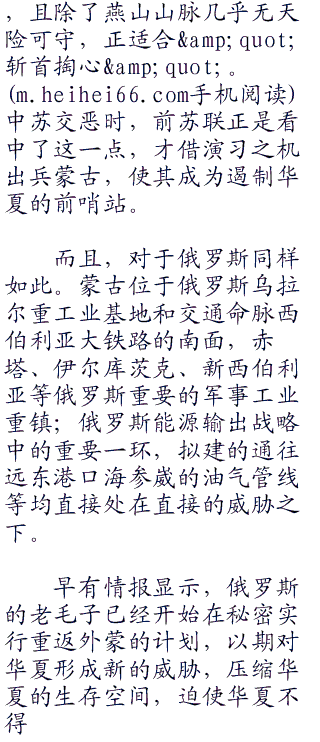 ，且除了燕山山脉几乎无天
险可守，正适合&amp;quot;
斩首掏心&amp;quot;。
(m.heihei66.com手机阅读)
中苏交恶时，前苏联正是看
中了这一点，才借演习之机
出兵蒙古，使其成为遏制华
夏的前哨站。
而且，对于俄罗斯同样
如此。蒙古位于俄罗斯乌拉
尔重工业基地和交通命脉西
伯利亚大铁路的南面，赤
塔、伊尔库茨克、新西伯利
亚等俄罗斯重要的军事工业
重镇；俄罗斯能源输出战略
中的重要一环，拟建的通往
远东港口海参崴的油气管线
等均直接处在直接的威胁之
下。
早有情报显示，俄罗斯
的老毛子已经开始在秘密实
行重返外蒙的计划，以期对
华夏形成新的威胁，压缩华
夏的生存空间，迫使华夏不
得